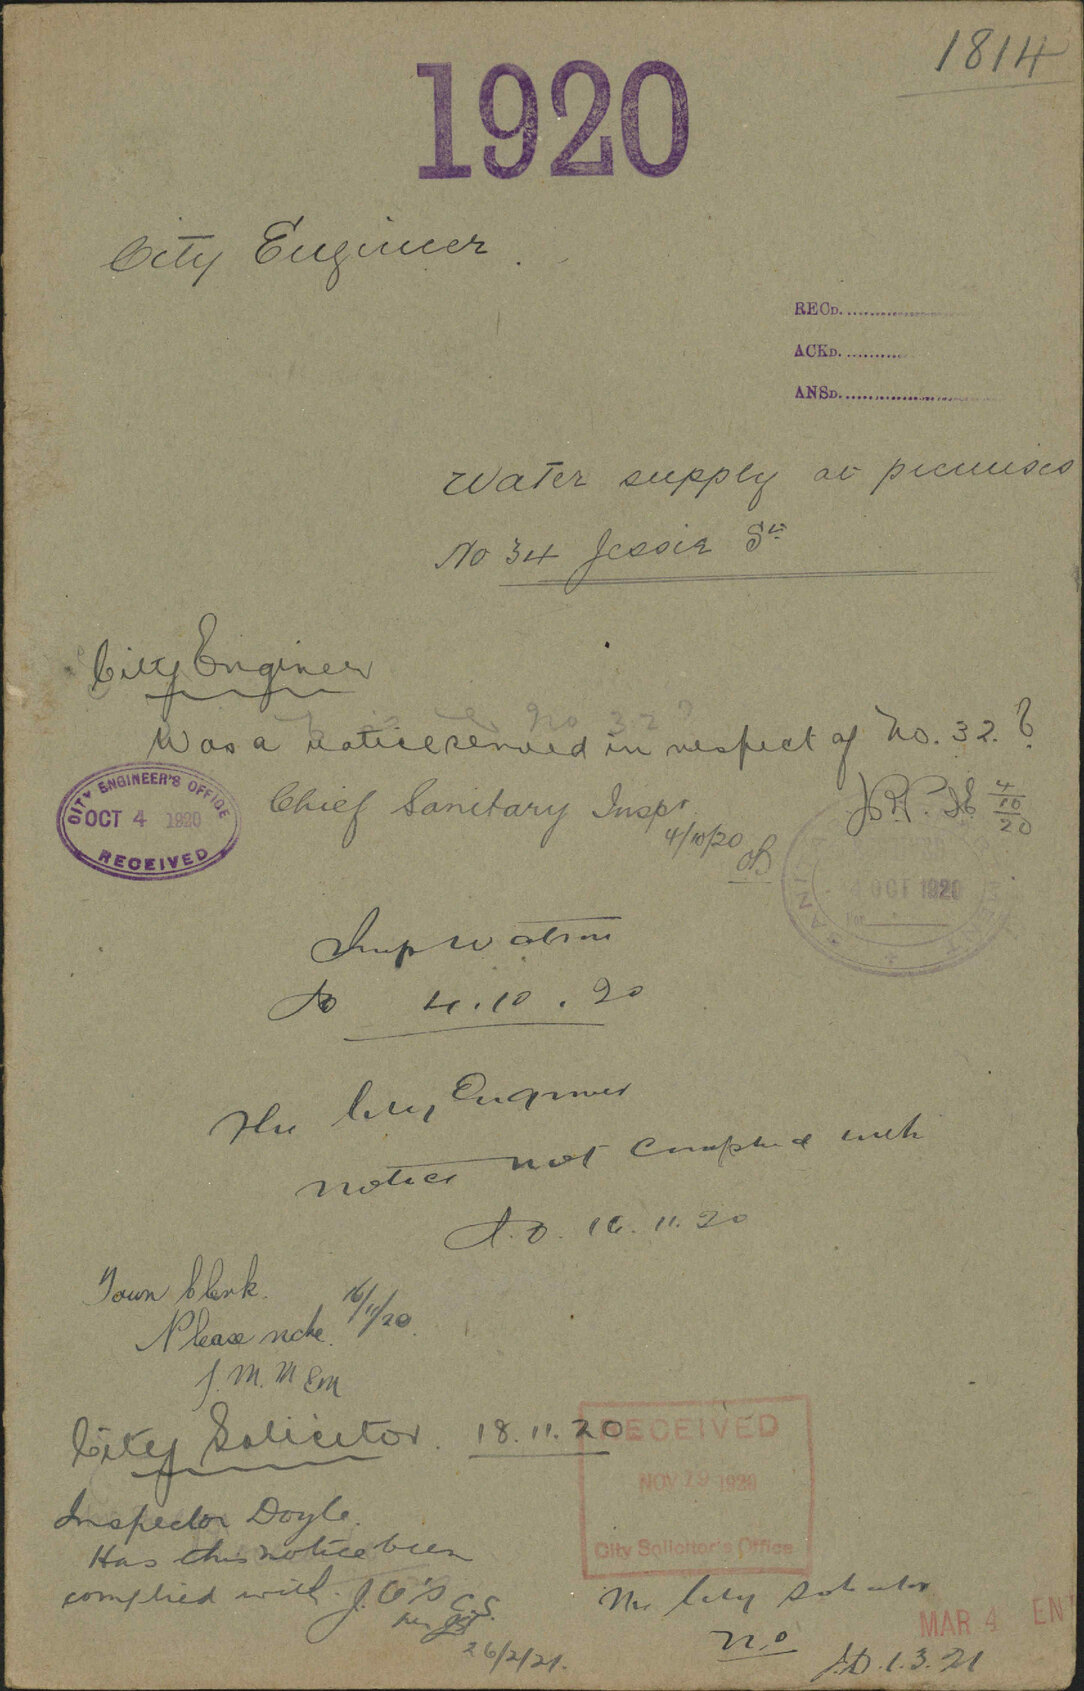 1814
1920
City Engineer.
RECD.
ACKD.
ANSD.
Water supply at premises
No 34 Jessie St.
City Engineer
Was a notice served in respect of No. 32.?
CITY ENGINEER'S OFFICE
OCT 4 1920
RECEIVED
Chief Sanitary Inspr
4/10/20
4/10/20
4 OCT 1920
Insp Watson
4.10.20
The City Engineer
notice not complied with
16.11.20
Town Clerk.
Please note. 16/11/20
J.M.M
City Solicitor. 18.11.20
RECEIVED
NOV 1920
City Solicitor's Office
Inspector Doyle.
Has this notice been
complied with. J.O'S C.S.
26/2/21.
The City Solicitor
no
J.D. 1.3.21
MAR 4 ENT